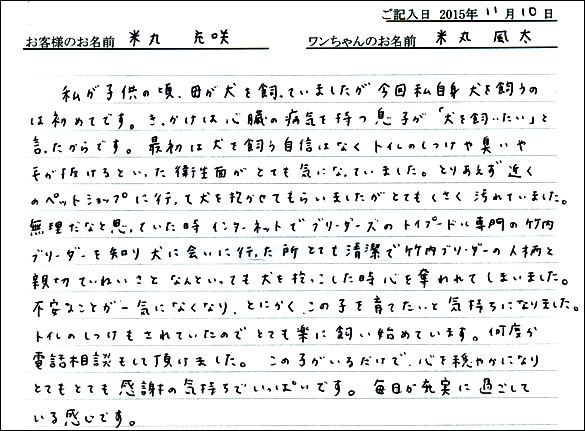 ご記入日 2015年 11月 10日
お客様のお名前 米丸 充咲 ワンちゃんのお名前 米丸 風太
私が子供の頃、母が犬を飼っていましたが今回私自身犬を飼うの
は初めてです。きっかけは心臓の病気を持つ息子が「犬を飼いたい」と
言ったからです。最初は犬を飼う自信はなくトイレのしつけや臭いや
毛が抜けるといった衛生面がとても気になっていました。とりあえず近く
のペットショップに行って犬を抱かせてもらいましたがとてもくさく汚れていました。
無理だなと思っていた時インターネットでブリーダーズのトイプードル専門の竹内
ブリーダーを知り犬に会いに行った所とても清潔で竹内ブリーダーの人柄と
親切ていねいさとなんといっても犬を抱っこした時心を奪われてしまいました。
不安なことが一気になくなり、とにかくこの子を育てたいと気持ちになりました。
トイレのしつけもされていたのでとても楽に飼い始めています。何度か
電話相談もして頂けました。この子がいるだけで、心を穏やかになり
とてもとても感謝の気持ちでいっぱいです。毎日が充実に過ごして
いる感じです。